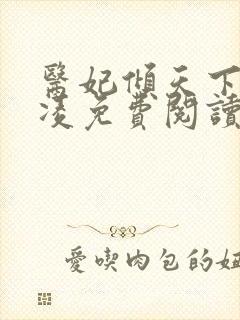 醫妃傾天下
凌免費閱讀
愛喫肉包的妞